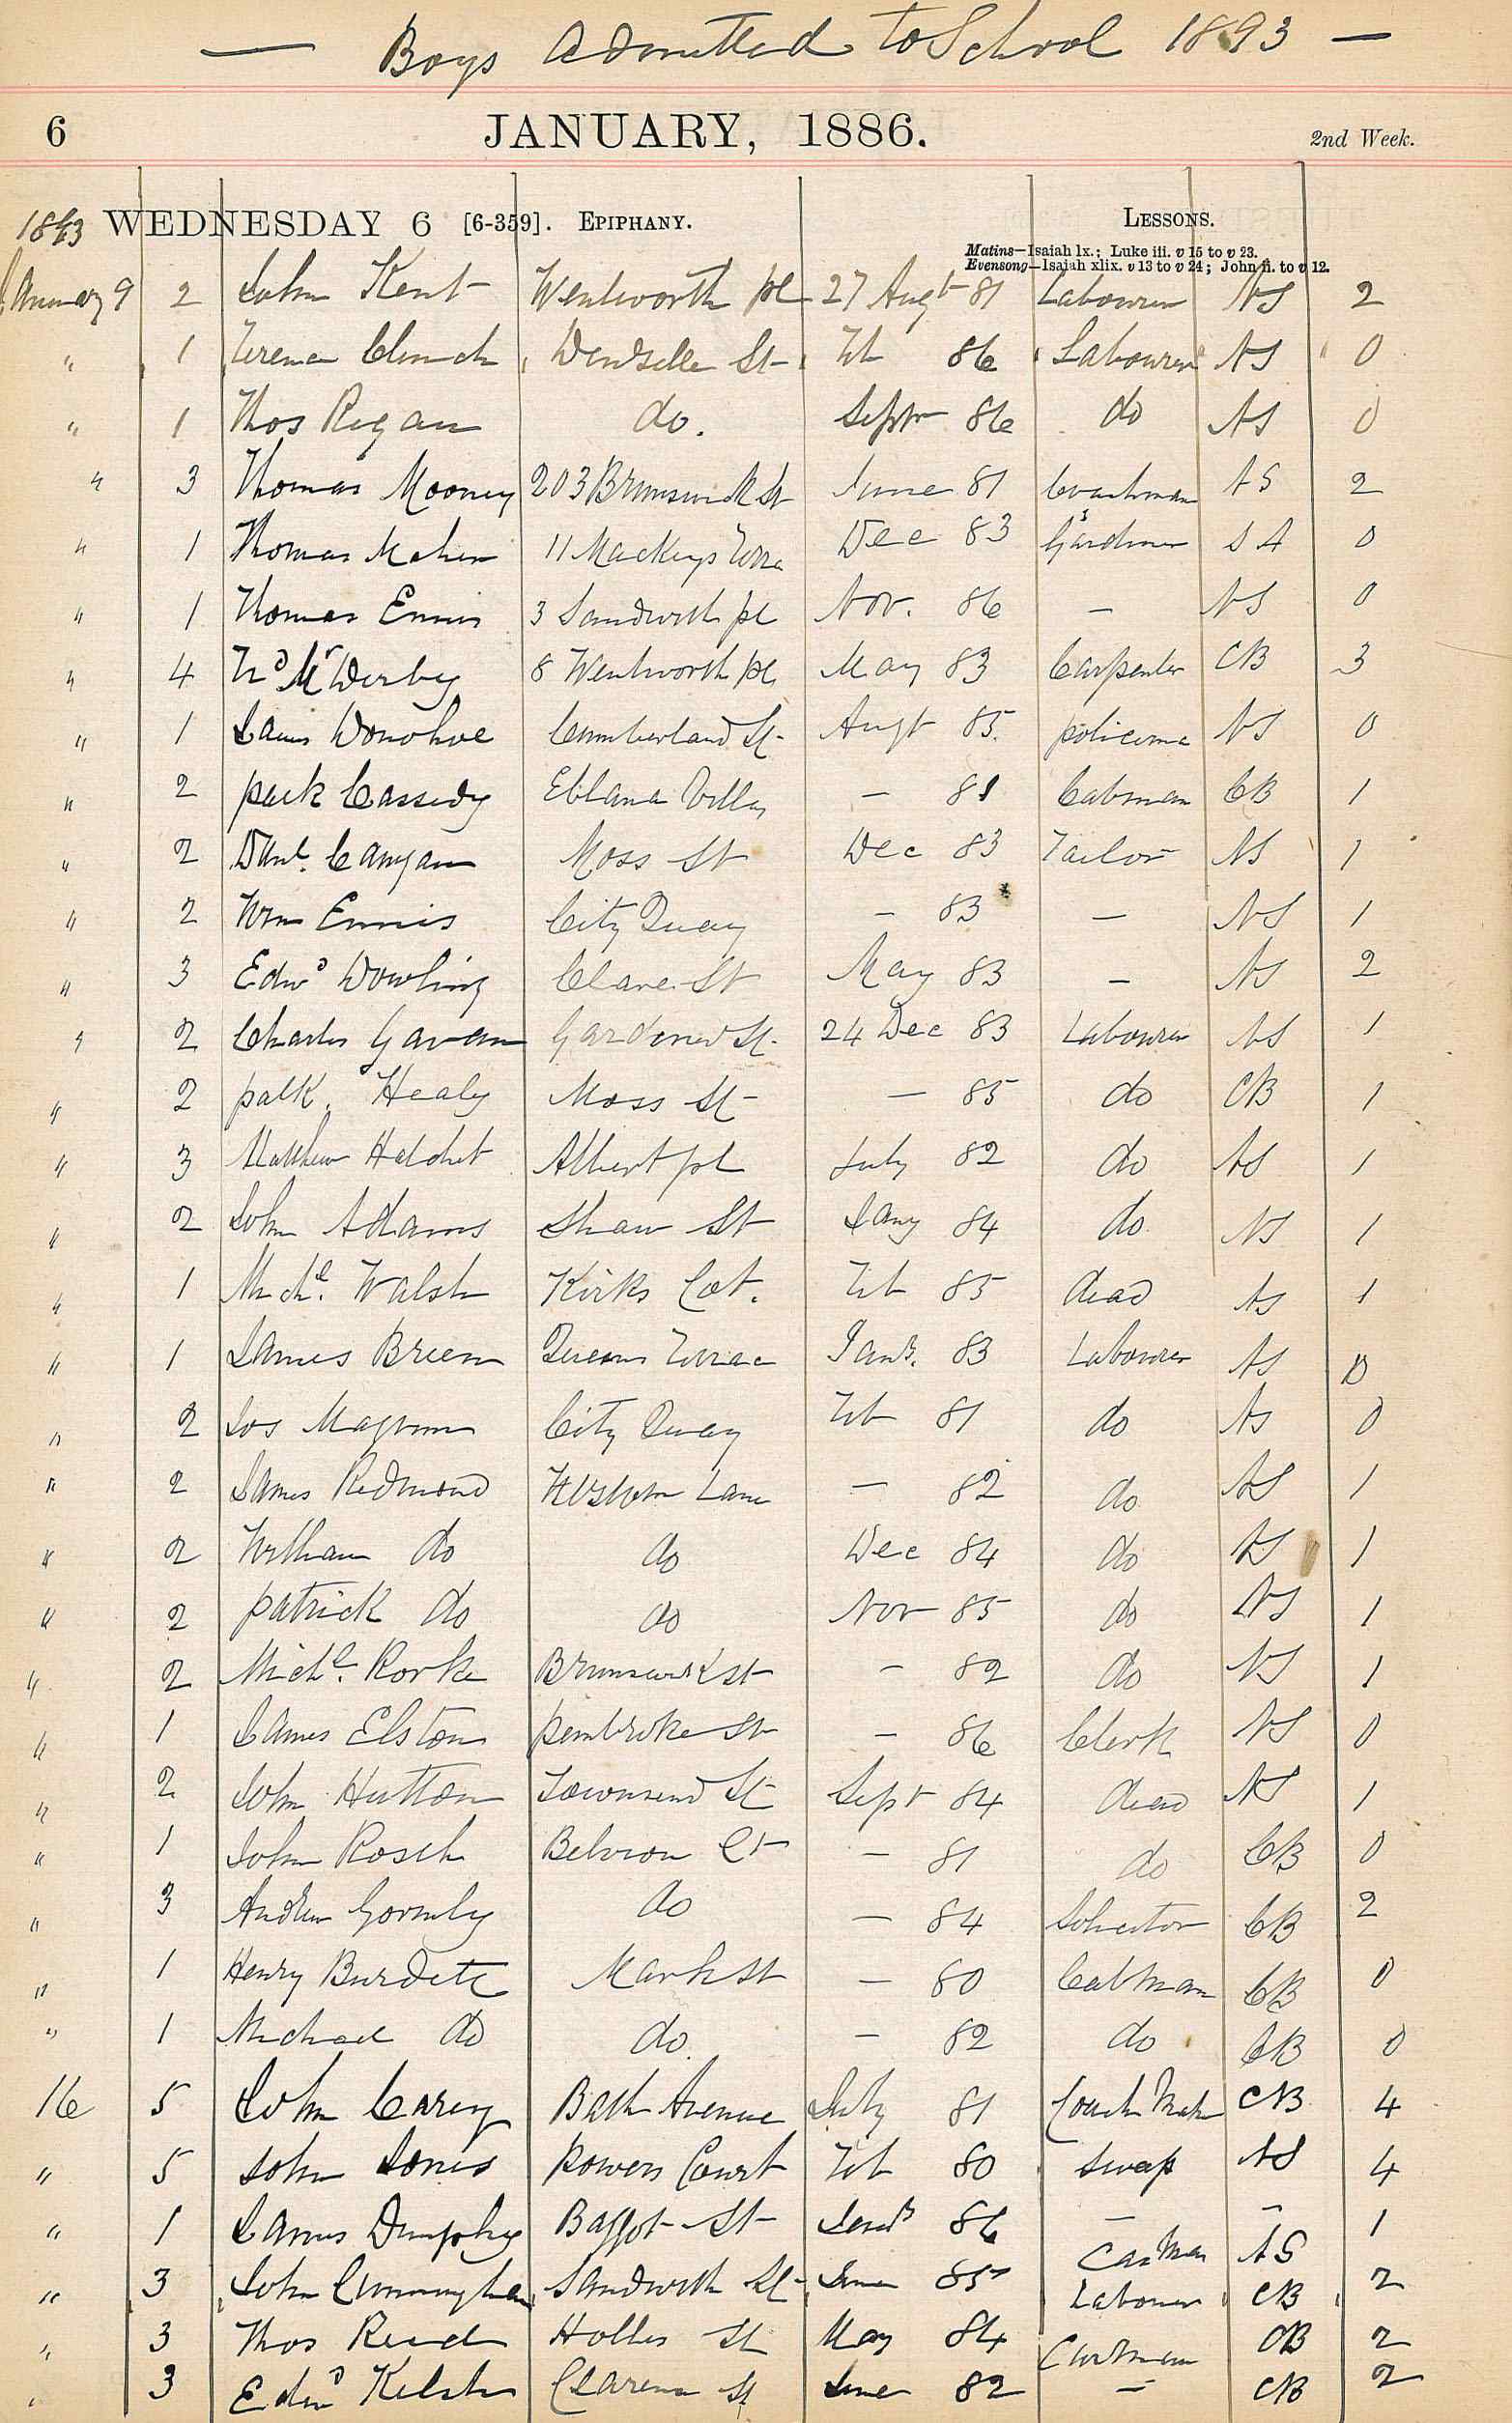 — Boys admitted to School 1893 —
6 JANUARY, 1886. 2nd Week.
1893 WEDNESDAY 6 [6-359]. EPIPHANY. LESSONS.
Matins—Isaiah lx.; Luke iii. v 15 to v 23.
Evensong—Isaiah xlix. v 13 to v 24; John ii. to v 12.
January 9 2 John Kent Wentworth pl 27 Augt 81 Labourer NS 2
" 1 Terence Clinch St Feb 86 Labourer NS 0
" 1 Thos Regan do. Septr 86 do NS 0
" 3 Thomas Mooney 203 Brunswick St June 81 Coachman NS 2
" 1 Thomas Maher 11 Mackeys Terrace Dec 83 Gardner 0
" 1 Thomas Ennis 3 Sandwith pl Nov. 86 — NS 0
" 4 McDerby 8 Wentworth pl May 83 Carpenter CB 3
" 1 James Donohoe Cumberland St Augt 85 policeman NS 0
" 2 patk Cassidy Eblana Villas — 81 Cabman CB 1
" 2 Danl. Moss St Dec 83 Tailor NS 1
" 2 Wm Ennis City Quay — 83 — NS 1
" 3 Edwd Dowling Clare St May 83 — NS 2
" 2 Charles Gavan Gardiner St 24 Dec 83 Labourer NS 1
" 2 patk. Healy Moss St — 85 do CB 1
" 3 Matthew Albert pl July 82 do NS 1
" 2 John Adams Shaw St Jany 84 do NS 1
" 1 Michl. Walsh Kirks Cot. Feb 85 dead NS 1
" 1 James Breen Queens Terrace Jany. 83 Labourer NS 0
" 2 Jos City Quay Feb 81 do NS 0
" 2 James Redmond Lane — 82 do NS 1
" 2 William do do Dec 84 do NS 1
" 2 patrick do do Nov 85 do NS 1
" 2 Michl. Rorke Brunswick st — 82 do NS 1
" 1 James Elston pembroke St — 86 Clerk NS 0
" 2 John Hutton Townsend St Sept 84 dead NS 1
" 1 John Ct — 81 do CB 0
" 3 Andrew Gormly do — 84 Solicitor CB 2
" 1 Henry Burdett Mark St — 80 Cabman CB 0
" 1 Michael do do — 82 do CB 0
16 5 John Carey Bath Avenue July 81 Coach Maker CB 4
" 5 John Jones powers Court Feb 80 sweep NS 4
" 1 James Dumphy Baggot St 86 — — 1
Carman NS
" 3 John Cunningham Sandwith St June 85 Labourer CB 2
" 3 Thos Reed Holles St May 84 CB 2
" 3 Edwd Clarence St June 82 — CB 2